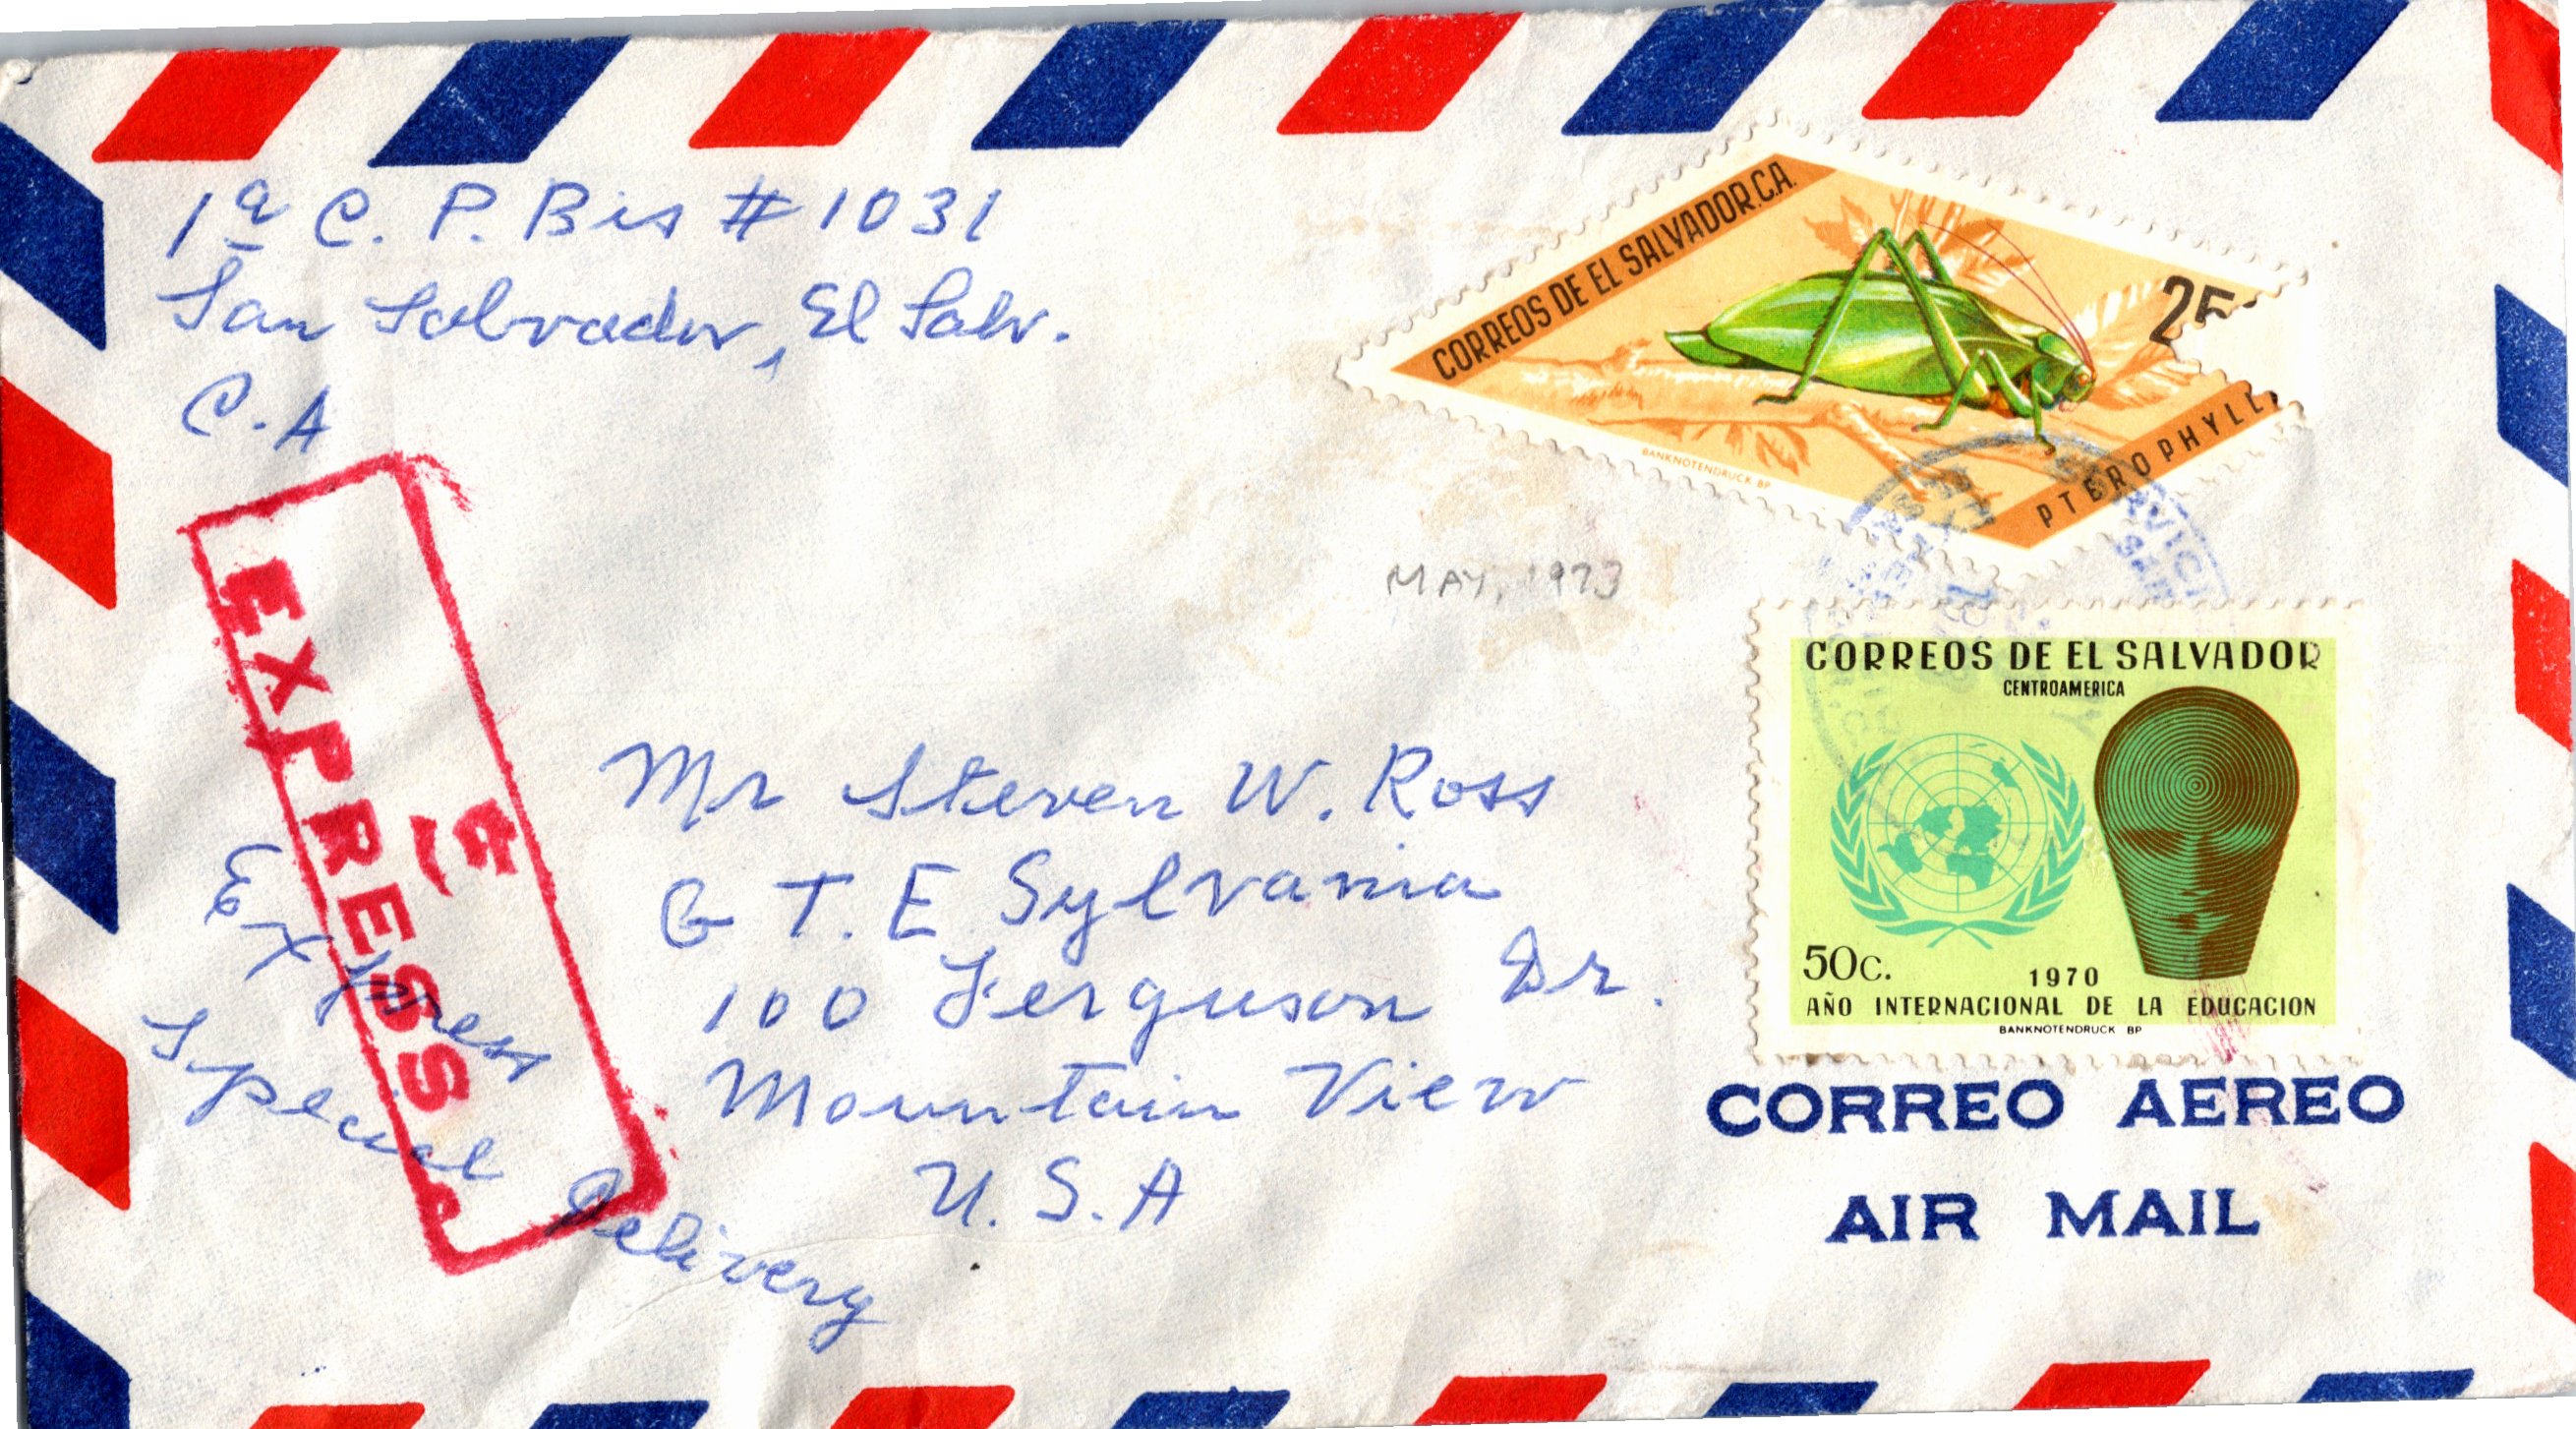 1ª C. P. Bis # 1031
San Salvador, El Salv.
C. A
CORREOS DE EL SALVADOR. C.A.
25
PTEROPHYLL
BANKNOTENDRUCK BP
MAY, 1973
EXPRESS
Express
Special Delivery
Mr Steven W. Ross
G T. E Sylvania
100 Ferguson Dr.
Mountain View
U. S. A
CORREOS DE EL SALVADOR
CENTROAMERICA
50c.
1970
AÑO INTERNACIONAL DE LA EDUCACION
BANKNOTENDRUCK BP
CORREO AEREO
AIR MAIL